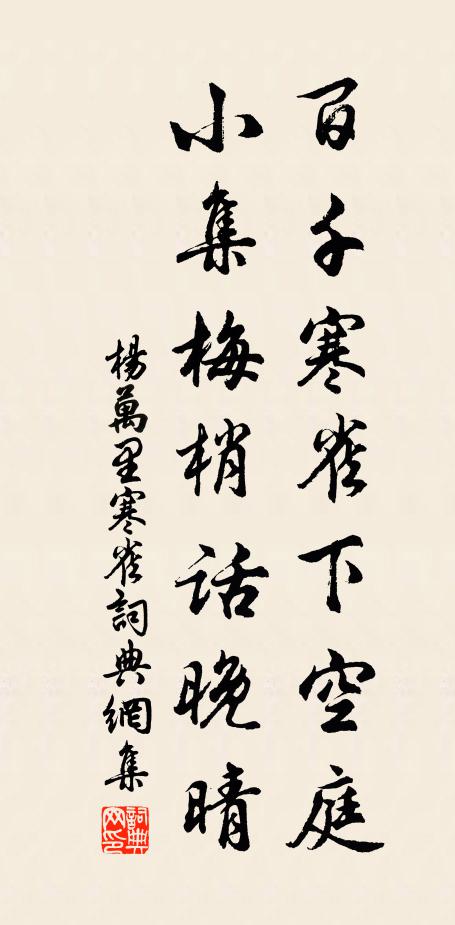 百千寒雀下空庭
小集梅梢話晚晴
楊萬里寒雀詞典網集
詞典网印